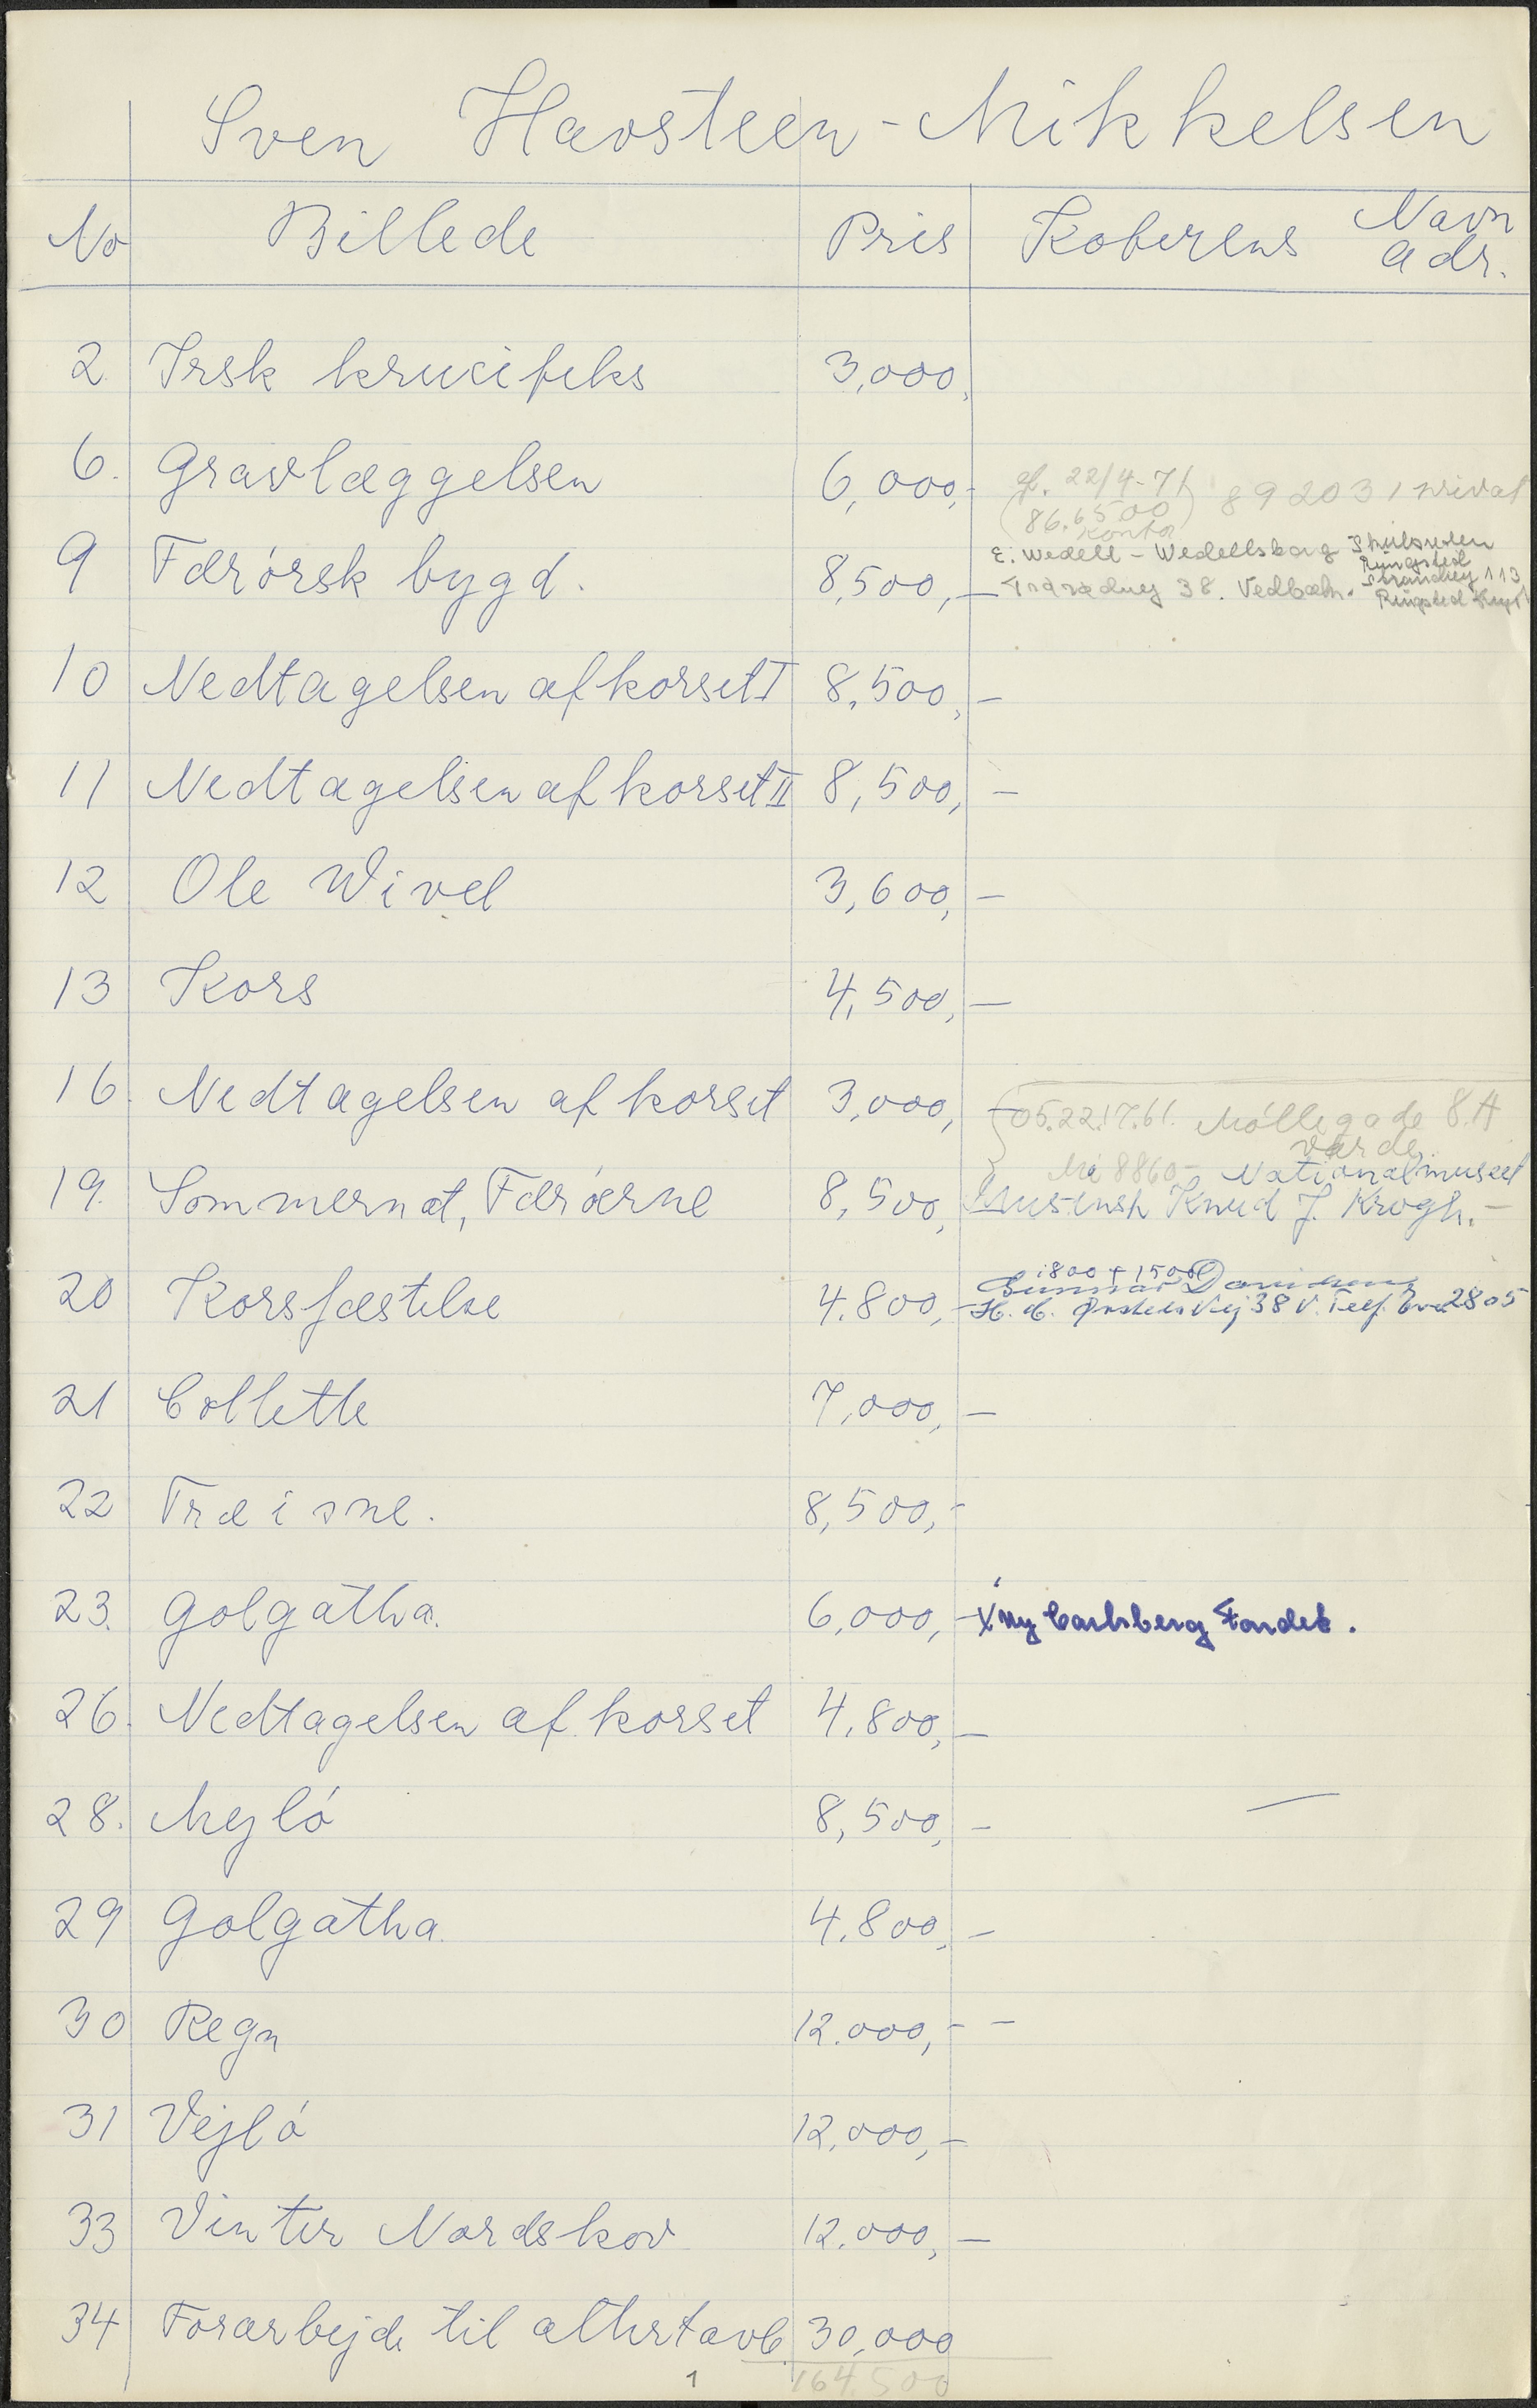 Sven Havsteen-Mikkelsen
No Billede Pris Køberens Navn adr.
2 Irsk krucifeks 3,000,
6. Gravlæggelsen 6,000,- 22/4-71 892031 privat
(86.6500) kontor
E. Wedell-Wedellsborg
9 Færórsk bygd. 8,500,- 38. Vedbæk.
Rungsted
Strandvej 113
Rungsted Kyst
10 Nedtagelsen af korset I 8,500,-
11 Nedtagelsen af korset II 8,500,-
12 Ole Wivel 3,600,-
13 Kors 4,500,-
16. Nedtagelsen af korset 3,000,- 05.22.17.61. Móllegade 8.A
Varde.
8860- Nationalmuseet
19. Sommernat, Færóerne 8,500, Knud J. Krogh.-
1800 + 1500
20 Korsfæstelse 4.800,- Gunnar
38 V. Telf. Eva 2805
21 Collette 7,000,-
22 Træ i sne. 8,500,-
23. Golgatha. 6,000,- x Ny Carlsberg Fondet.
26. Nedtagelsen af korset 4.800,-
28. Mejló 8,500,- -
29 Golgatha 4.800,-
30 Regn 12.000,- -
31 Vejló 12,000,-
33 Vinter Nordskov 12.000,-
34 Forarbejde til altertavle 30,000
1 164.500